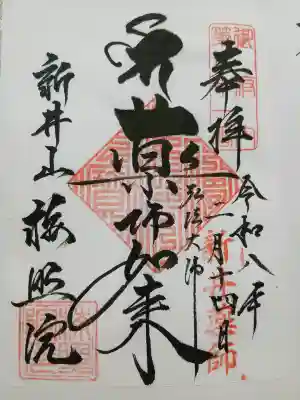 奉拝
令和八年
二月十四日
新井薬師
弘法大師
薬師如来
新井山 梅照院